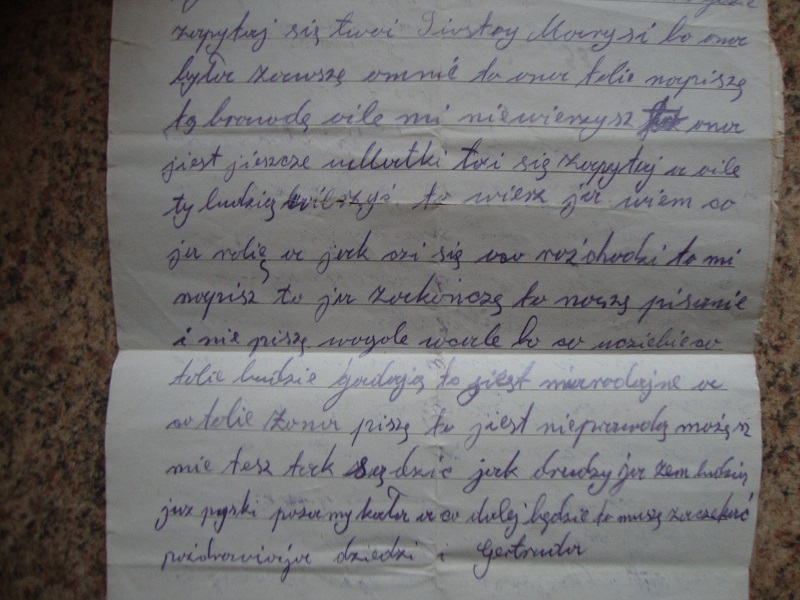 zapytaj się twoi Siostry Marysi bo ona
była zawszę omnie to ona tobie napiszę
tą brawdę oile mi niewierzysz ona
jest jieszcze uMatki toi się zapytaj a oile
ty ludzią to wiesz ja wiem co
ja robię a jak ci się oco rozchodzi to mi
napisz to ja zakończę to naszę pisanie
i nie piszę wogole wcale bo co uciebie co
tobie ludzie gadają to jest miarodajne a
co tobie żona piszę to jest nieprawdą możęsz
mie tesz tak sądzić jak drudzy ja żem ludzią
już pyski pozamykała a co dalej będzie to muszę zaczekać
pozdrawiaja dziedzi i Gertruda